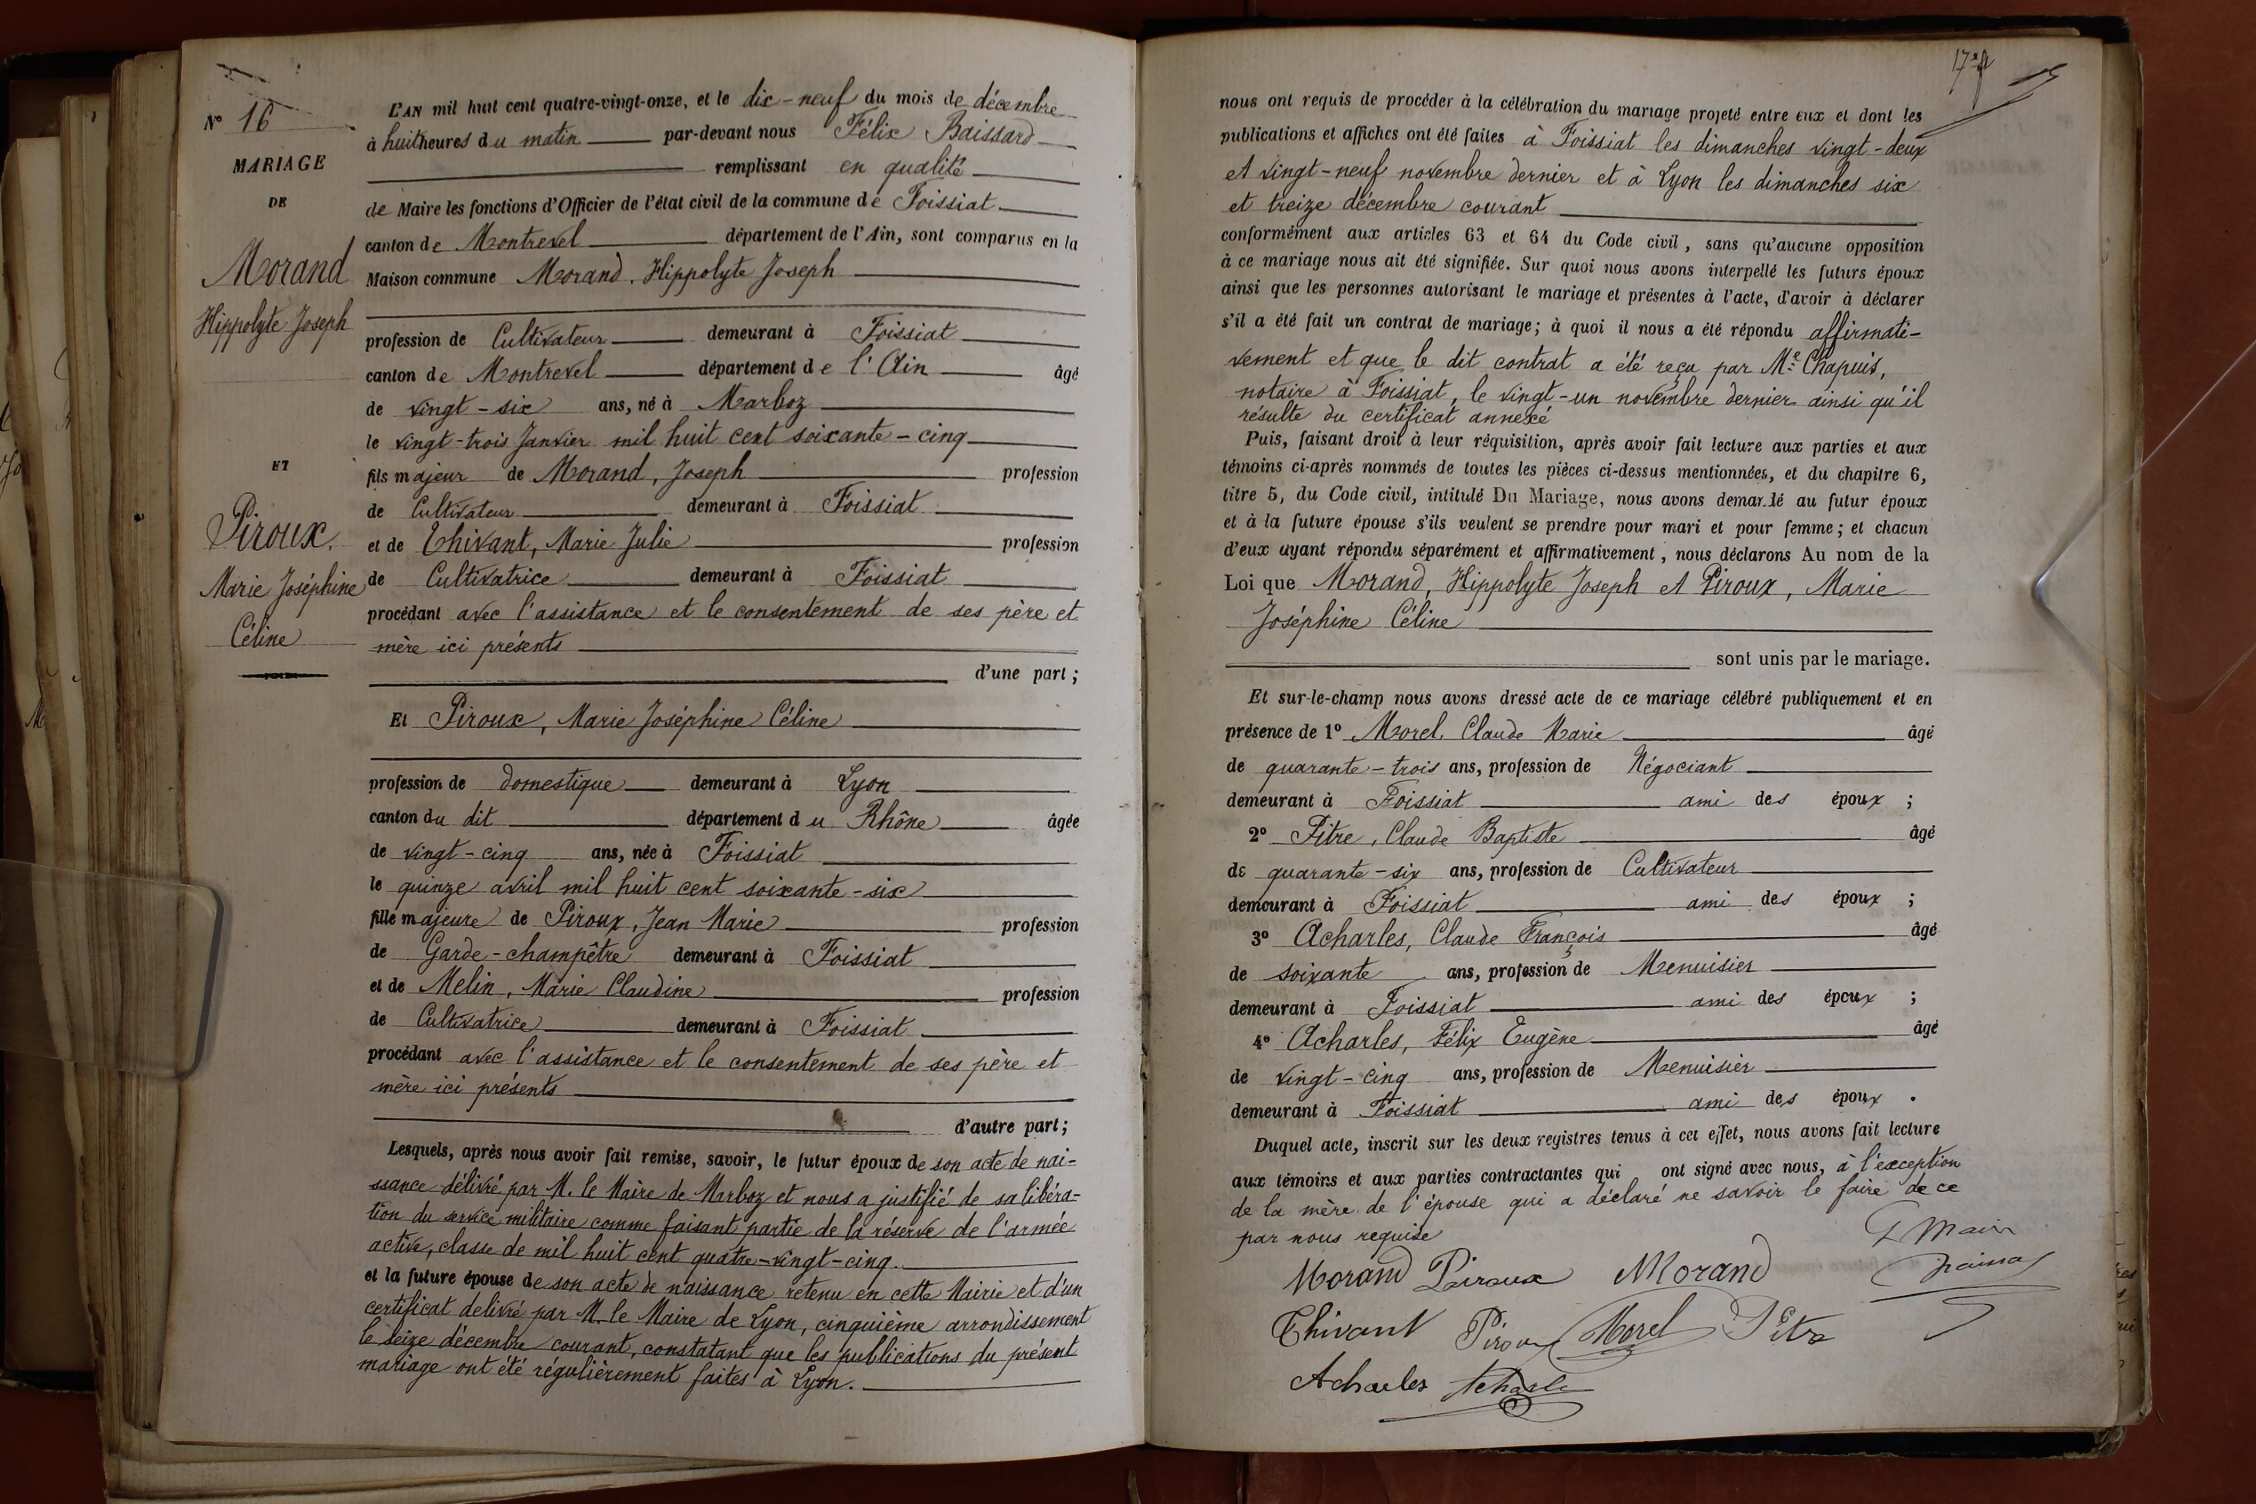 N° 16
MARIAGE
DE
Morand
Hippolyte Joseph
ET
Piroux.
Marie Joséphine
Céline
L'AN mil huit cent quatre-vingt-onze, et le dix-neuf du mois de décembre
à huit heures du matin par-devant nous Félix Baissard
remplissant en qualité
de Maire les fonctions d'Officier de l'état civil de la commune de Foissiat
canton de Montrevel département de l'Ain, sont comparus en la
Maison commune Morand, Hippolyte Joseph
profession de Cultivateur demeurant à Foissiat
canton de Montrevel département de l'Ain âgé
de vingt-six ans, né à Marboz
le vingt-trois Janvier mil huit cent soixante-cinq
fils majeur de Morand, Joseph profession
de Cultivateur demeurant à Foissiat
et de Thivant, Marie Julie profession
de Cultivatrice demeurant à Foissiat
procédant avec l'assistance et le consentement de ses père et
mère ici présents
d'une part ;
Et Piroux, Marie Joséphine Céline
profession de domestique demeurant à Lyon
canton du dit département du Rhône âgée
de vingt-cinq ans, née à Foissiat
le quinze avril mil huit cent soixante-six
fille majeure de Piroux, Jean Marie profession
de Garde-champêtre demeurant à Foissiat
et de Melin, Marie Claudine profession
de Cultivatrice demeurant à Foissiat
procédant avec l'assistance et le consentement de ses père et
mère ici présents
d'autre part ;
Lesquels, après nous avoir fait remise, savoir, le futur époux de son acte de nai-
ssance délivré par M. le Maire de Marboz et nous a justifié de sa libéra-
tion du service militaire comme faisant partie de la réserve de l'armée
active, classe de mil huit cent quatre-vingt-cinq.
et la future épouse de son acte de naissance retenu en cette Mairie et d'un
certificat delivré par M. le Maire de Lyon, cinquième arrondissement
le seize décembre courant, constatant que les publications du présent
mariage ont été régulièrement faites à Lyon.
nous ont requis de procéder à la célébration du mariage projeté entre eux et dont les
publications et affiches ont été faites à Foissiat les dimanches vingt-deux
et vingt-neuf novembre dernier et à Lyon les dimanches six
et treize décembre courant
conformément aux articles 63 et 64 du Code civil, sans qu'aucune opposition
à ce mariage nous ait été signifiée. Sur quoi nous avons interpellé les futurs époux
ainsi que les personnes autorisant le mariage et présentes à l'acte, d'avoir à déclarer
s'il a été fait un contrat de mariage ; à quoi il nous a été répondu affirmati-
vement et que le dit contrat a été reçu par Me Chapuis,
notaire à Foissiat, le vingt-un novembre dernier ainsi qu'il
résulte du certificat annexé
Puis, faisant droit à leur réquisition, après avoir fait lecture aux parties et aux
témoins ci-après nommés de toutes les pièces ci-dessus mentionnées, et du chapitre 6,
titre 5, du Code civil, intitulé Du Mariage, nous avons demandé au futur époux
et à la future épouse s'ils veulent se prendre pour mari et pour femme ; et chacun
d'eux ayant répondu séparément et affirmativement, nous déclarons Au nom de la
Loi que Morand, Hippolyte Joseph et Piroux, Marie
Joséphine Céline
sont unis par le mariage.
Et sur-le-champ nous avons dressé acte de ce mariage célébré publiquement et en
présence de 1° Morel, Claude Marie âgé
de quarante-trois ans, profession de Négociant
demeurant à Foissiat ami des époux ;
2° Pitre, Claude Baptiste âgé
de quarante-six ans, profession de Cultivateur
demeurant à Foissiat ami des époux ;
3° Acharles, Claude François âgé
de soixante ans, profession de Menuisier
demeurant à Foissiat ami des époux ;
4° Acharles, Félix Eugène âgé
de vingt-cinq ans, profession de Menuisier
demeurant à Foissiat ami des époux .
Duquel acte, inscrit sur les deux registres tenus à cet effet, nous avons fait lecture
aux témoins et aux parties contractantes qui ont signé avec nous, à l'exception
de la mère de l'épouse qui a déclaré ne savoir le faire de ce
par nous requise
Morand Piroux Morand
Thivant Piroux Morel Pitre
Acharles Acharles